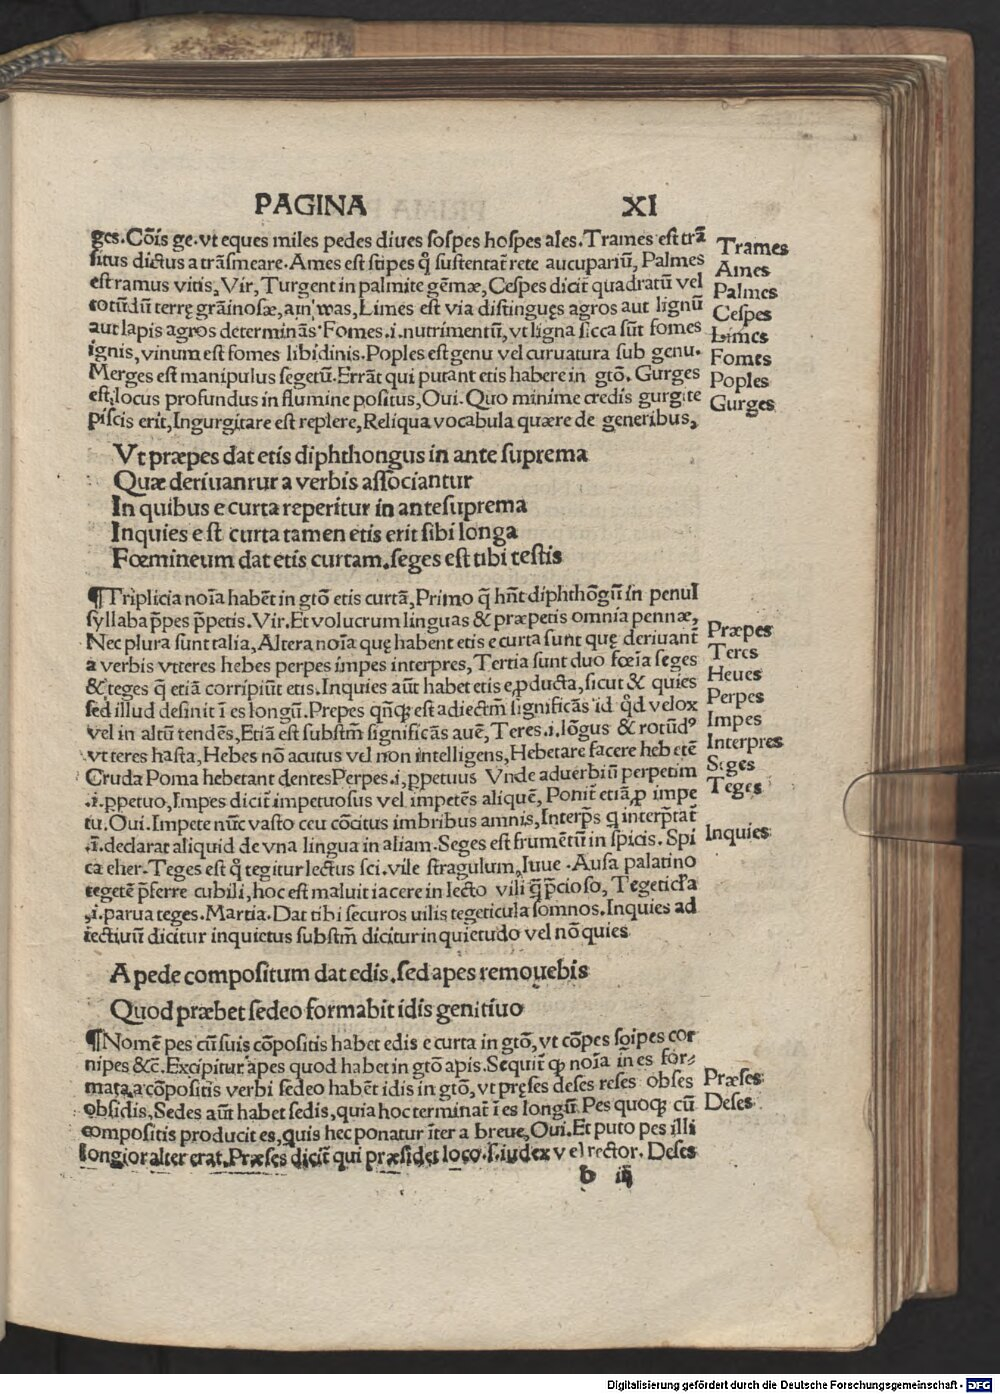 PAGINA XI
ges.Cōis ge.vt eques miles pedes diues sospes hospes ales.Trames est trā
situs dictus a trāsmeare.Ames est stipes q̊ sustentat̄ rete aucupariū, Palmes
est ramus vitis, Vir, Turgent in palmite gēmæ, Cespes dicit̄ quadratū vel
rotūdū terrę grāinosæ, ain was, Limes est via distinguęs agros aut lignū
aut lapis agros determinās.Fomes.i.nutrimentū, vt ligna sicca sūt fomes
ignis, vinum est fomes libidinis.Poples est genu vel curuatura sub genu.
Merges est manipulus segetū.Errāt qui putant etis habere in gtō. Gurges
est locus profundus in flumine positus, Oui.Quo minime credis gurgite
piscis erit, Ingurgitare est replere, Reliqua vocabula quære de generibus,
Trames
Ames
Palmes
Cespes
Limes
Fomes
Poples
Gurges
Vt præpes dat etis diphthongus in ante suprema
Quæ deriuanrur a verbis assōciantur
In quibus e curta reperitur in antesuprema
Inquies est curta tamen etis erit sibi longa
Fœmineum dat etis curtam.seges est tibi testis
¶Triplicia noīa habēt in gtō etis curtā, Primo q̄ hn̄t diphthōgū in penul
syllaba p̄pes p̄petis.Vir.Et volucrum linguas & præpetis omnia pennæ,
Nec plura sunt talia, Altera noīa quę habent etis e curta sunt quę deriuant̄
a verbis vt teres hebes perpes impes interpres, Tertia sunt duo fœīa seges
& teges q̄ etiā corripiūt etis.Inquies aūt habet etis e ꝓducta, sicut & quies
sed illud desinit ī es longū.Prepes qn̄qꝫ est adiectm̄ significās id q̊d velox
vel in altū tendēs, Etiā est substm̄ significās auē, Teres.i.lōgus & rotūdꝰ
vt teres hasta, Hebes nō acutus vel non intelligens, Hebetare facere hebetē
Cruda Poma hebetant dentes Perpes.i, ꝑpetuus Vnde aduerbiū perpetim
.i.ꝑpetuo, Impes dicit̄ impetuosus vel impetēs aliquē, Ponit̄ etiā ꝓ impe
tu.Oui.Impete nūc vasto ceu cōcitus imbribus amnis, Interp̄s q̄ interp̄tat̄
.i.declarat aliquid de vna lingua in aliam.Seges est frumētū in spicis.Spi
ca eher.Teges est q̊ tegitur lectus sci.vile stragulum, Iuue.Ausa palatino
tegetē p̄ferre cubili, hoc est maluit iacere in lecto vili q̄̄ p̄cioso, Tegeticl̄a
.i.parua teges.Martia.Dat tibi securos uilis tegeticula somnos.Inquies ad
iectiuū dicitur inquietus substm̄ dicitur inquietudo vel nō quies
Præpes
Teres
Heues
Perpes
Impes
Interpres
Seges
Teges
Inquies
A pede compositum dat edis.sed apes remouebis
Quod præbet sedeo formabit idis genitiuo
¶Nomē pes cū suis cōpositis habet edis e curta in gtō, vt cōpes sonipes cor
nipes &c̄.Excipitur apes quod habet in gtō apis.Sequit̄ qꝫ noīa in es for⸗
mata a cōpositis verbi sedeo habēt idis in gtō, vt pręses deses reses obses
obsidis, Sedes aūt habet sedis, quia hoc terminat̄ ī es longū Pes quoqꝫ cū
compositis producit es, quis hec ponatur īter a breue, Oui.Et puto pes illi
longior alter erat.Præses dicit̄ qui præsidet loco.s.iudex vel rector. Deses
Præses
Deses
b iij
Digitalisierung gefördert durch die Deutsche Forschungsgemeinschaft - DFG